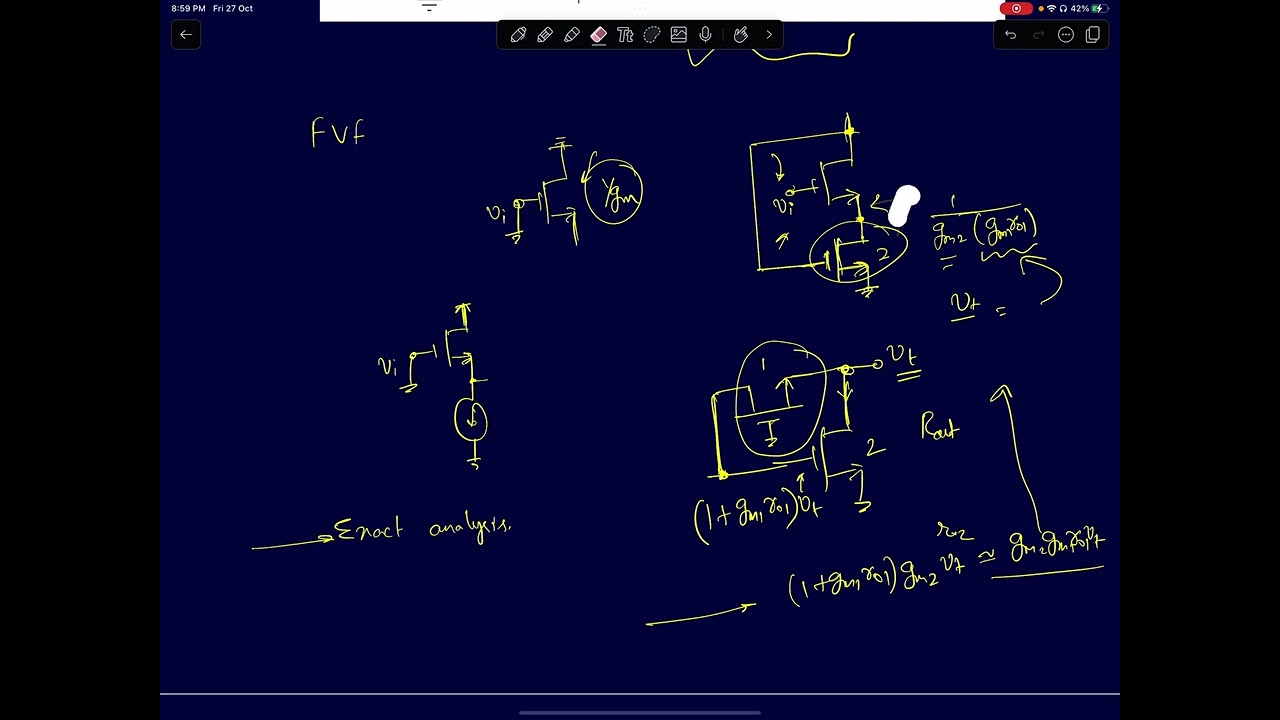 8:59 PM Fri 27 Oct
42%
Tt
FVF
1/gm
vi
vi
1
gm2 (gm1ro1)
2
vt =
vi
1
vt
2
Rout
(1+gm1ro1)vt
Exact analysis.
ro2
(1+gm1ro1)gm2vt ≈ gm2gm1ro1vt